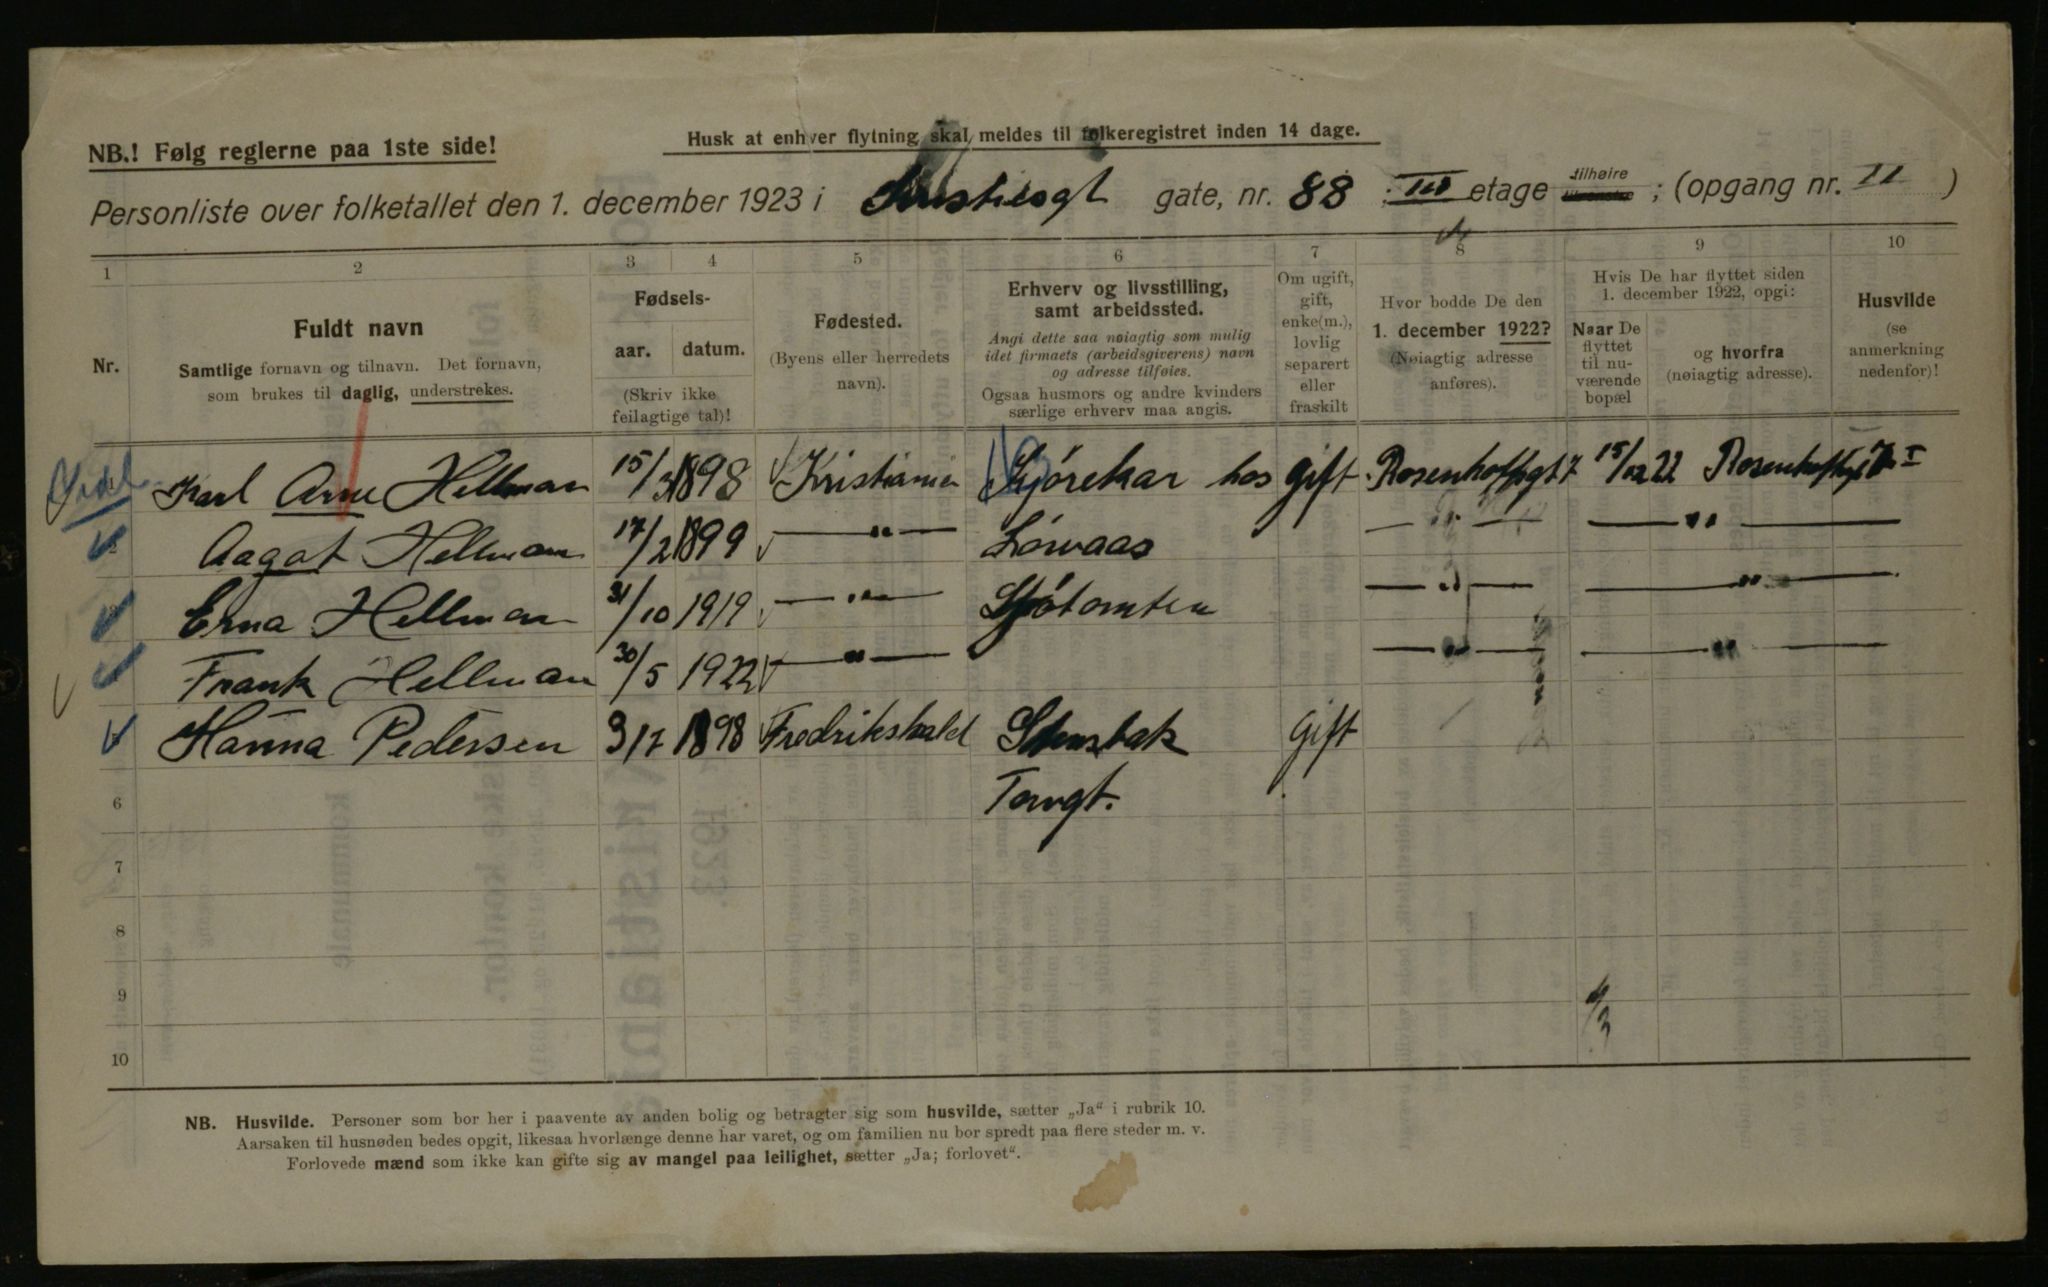 NB.! Følg reglerne paa 1ste side!
Husk at enhver flytning skal meldes til folkeregistret inden 14 dage.
Personliste over folketallet den 1. december 1923 i gate, nr. 88 III etage tilhøire ; (opgang nr. II )
1 2 3 4 5 6 7 8 9 10
Nr.
Fuldt navn
Samtlige fornavn og tilnavn. Det fornavn,
som brukes til daglig, understrekes.
Fødsels-
aar. datum.
(Skriv ikke
feilagtige tal)!
Fødested.
(Byens eller herredets
navn).
Erhverv og livsstilling,
samt arbeidssted.
Angi dette saa nøiagtig som mulig
idet firmaets (arbeidsgiverens) navn
og adresse tilføies.
Ogsaa husmors og andre kvinders
særlige erhverv maa angis.
Om ugift,
gift,
enke(m.),
lovlig
separert
eller
fraskilt
Hvor bodde De den
1. december 1922?
(Nøiagtig adresse
anføres).
Hvis De har flyttet siden
1. december 1922, opgi:
Naar De
flyttet
til nu-
værende
bopæl
og hvorfra
(nøiagtig adresse).
Husvilde
(se
anmerkning
nedenfor)!
Karl Arne Hellman 15/3 1898 Kristiania Kjørekar hos gift Rosenhoffgt 7 15/12 22
Aagot Hellman 17/2 1899 — " — — " — — " —
Erna Hellman 31/10 1919 — " — — " — — " —
Frank Hellman 30/5 1922 — " — — " — — " —
Hanna Pedersen 3/7 1898 Fredrikshald gift
6 Torvgt.
7
8
9
10
NB. Husvilde. Personer som bor her i paavente av anden bolig og betragter sig som husvilde, sætter „Ja“ i rubrik 10.
Aarsaken til husnøden bedes opgit, likesaa hvorlænge denne har varet, og om familien nu bor spredt paa flere steder m. v.
Forlovede mænd som ikke kan gifte sig av mangel paa leilighet, sætter „Ja; forlovet“.